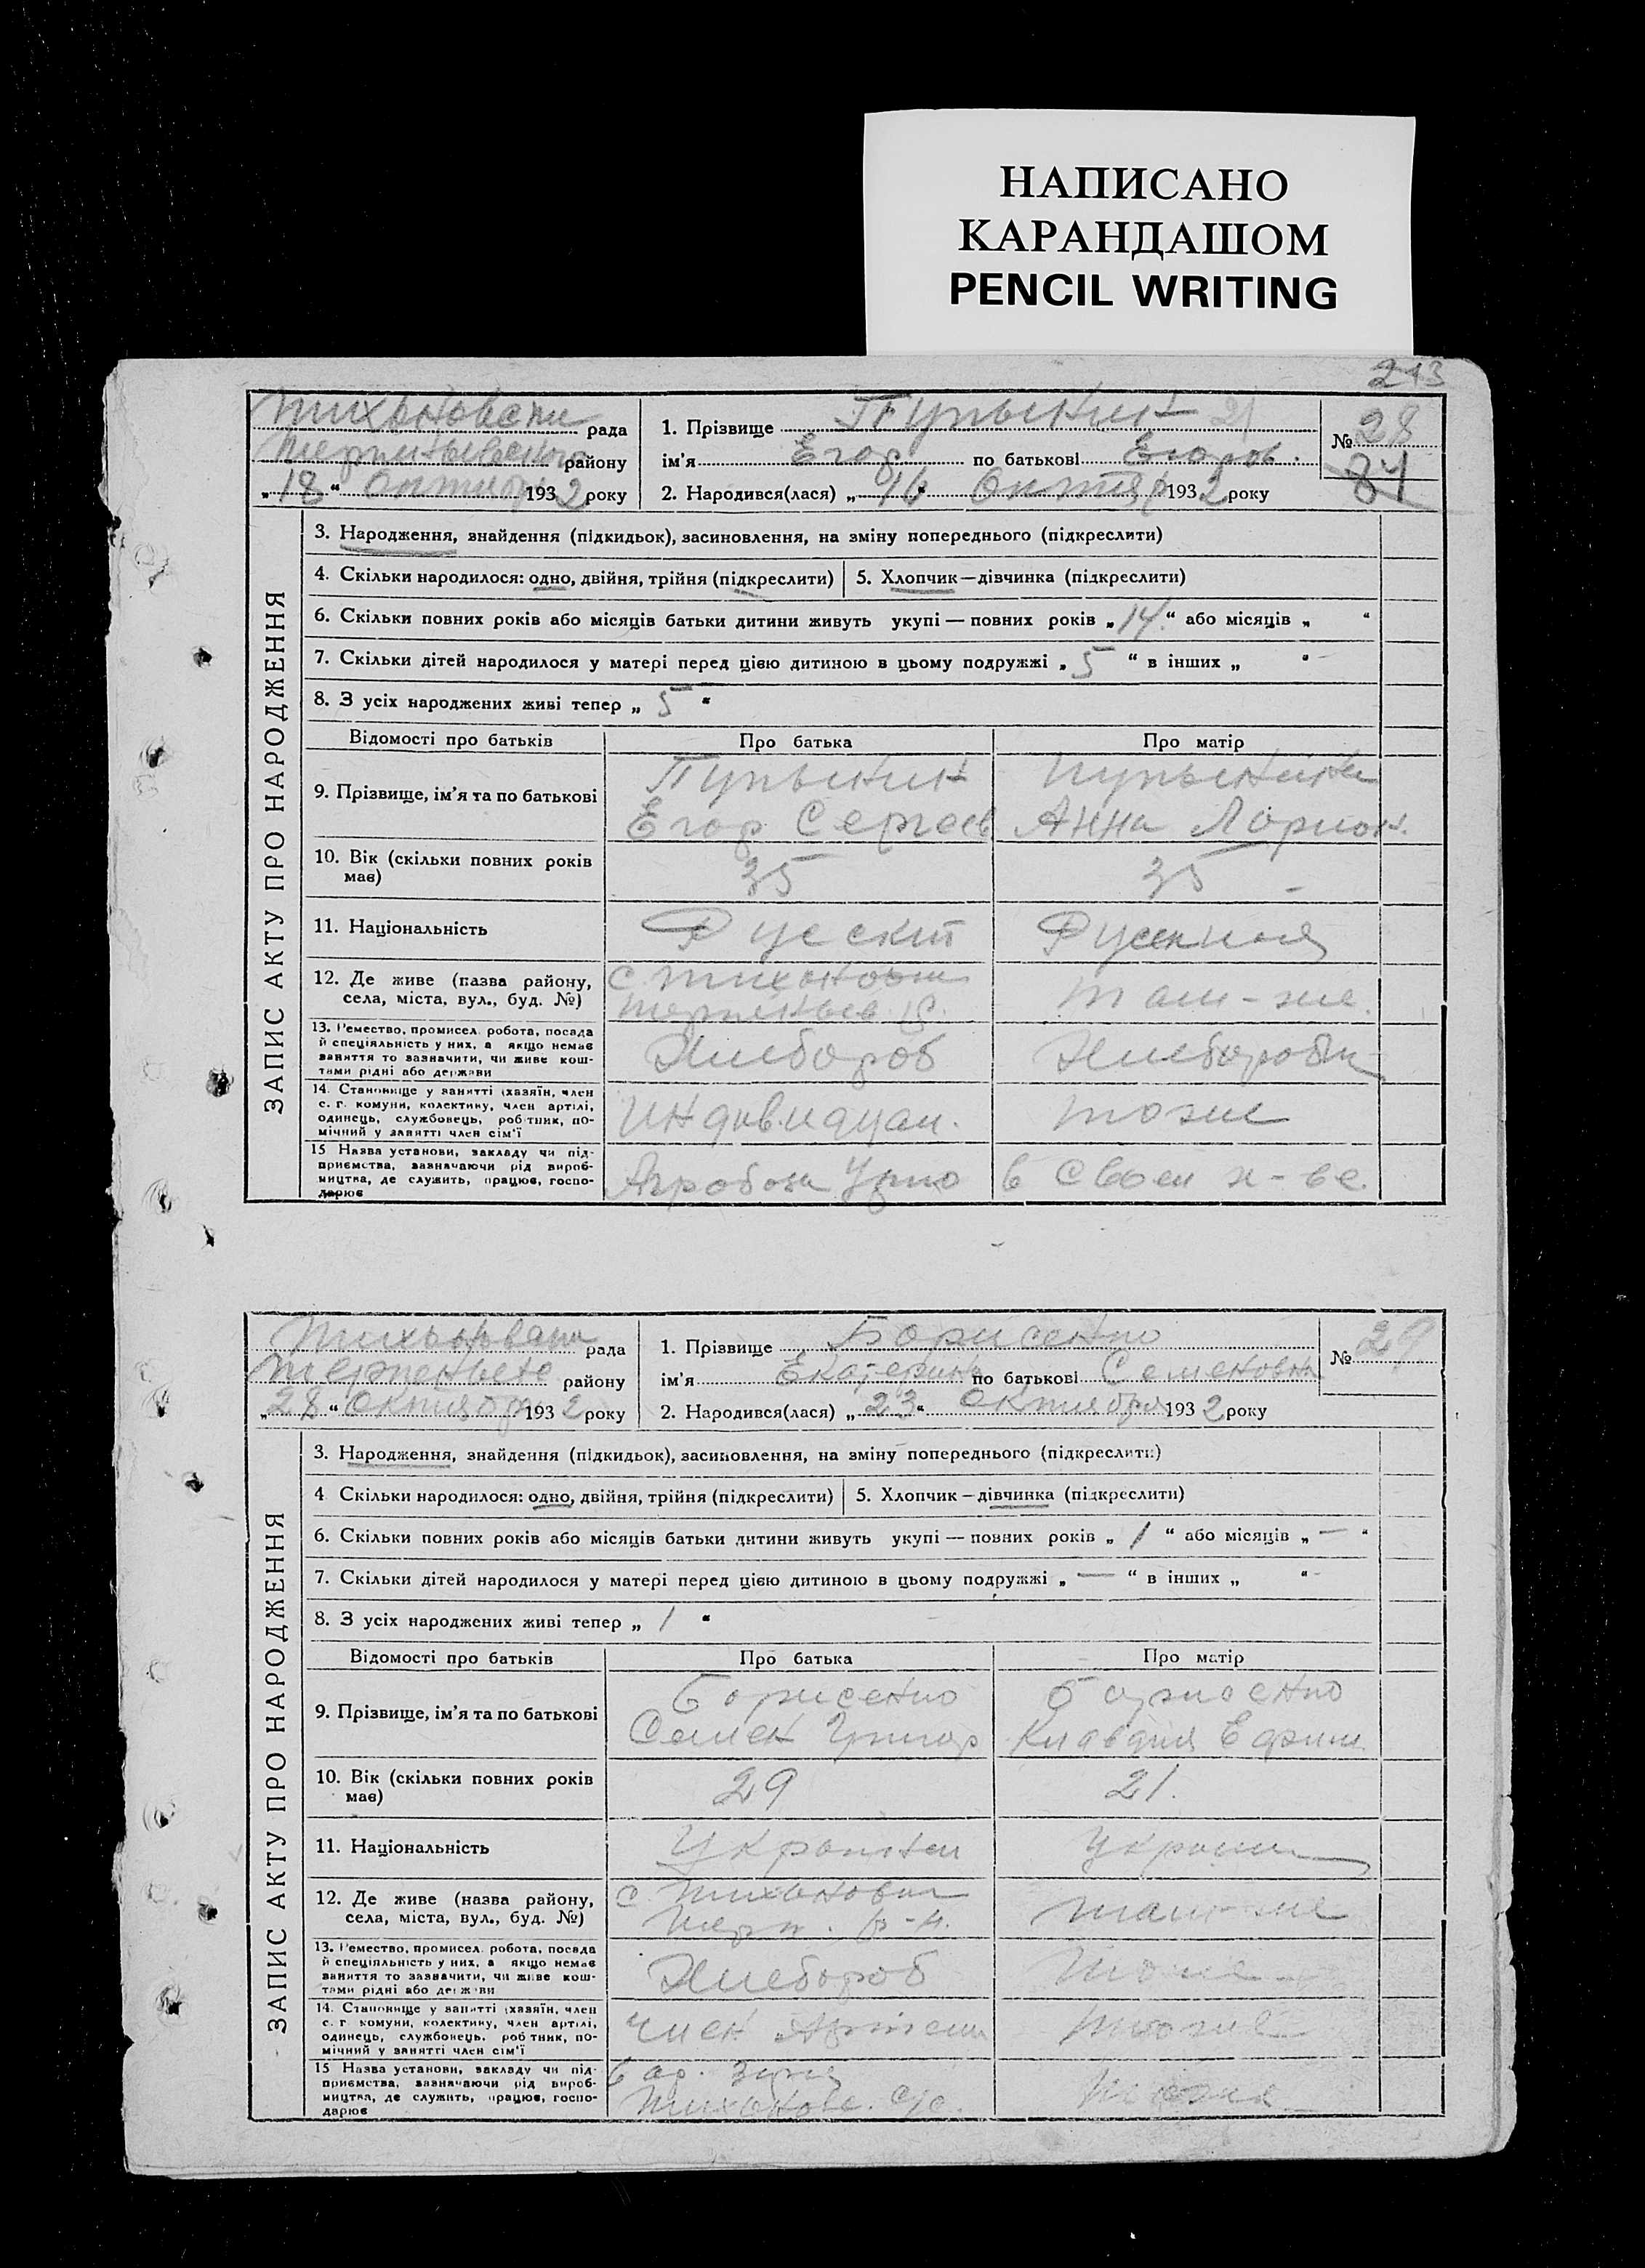 НАПИСАНО
КАРАНДАШОМ
PENCIL WRITING
213
рада
району
„18“ 1932 року
1. Прізвище Пупыкин 21
ім'я Егор по батькові Егоров.
2. Народився(лася) „16“ Октябр 1932 року
№ 28
84
ЗАПИС АКТУ ПРО НАРОДЖЕННЯ
3. Народження, знайдення (підкидьок), засиновлення, на зміну попереднього (підкреслити)
4. Скільки народилося: одно, двійня, трійня (підкреслити) 5. Хлопчик—дівчинка (підкреслити)
6. Скільки повних років або місяців батьки дитини живуть укупі — повних років „14“ або місяців „ “
7. Скільки дітей народилося у матері перед цією дитиною в цьому подружжі „5“ в інших „ “
8. З усіх народжених живі тепер „5“
Відомості про батьків Про батька Про матір
9. Прізвище, ім'я та по батькові
Пупыкин
Егор Сергеев
Пупыкина
Анна Ларион.
10. Вік (скільки повних років має) 35 35
11. Національність Руский Русския
12. Де живе (назва району, села, міста, вул., буд. №)
с. Тихоновка
там-же.
13. Ремество, промисел, робота, посада
й спеціяльність у них, а якщо немає
заняття то зазначити, чи живе кош-
тами рідні або держави
Хлебороб Хлеборобка
14. Становище у занятті (хазяїн, член
с. г. комуни, колективу, член артілі,
одинець, службовець, робітник, по-
мічний у занятті член сім'ї
Индивидуал. тоже
15 Назва установи, закладу чи під-
приємства, зазначаючи рід вироб-
ництва, де служить, працює, госпо-
дарює
в своем х-ве.
рада
району
„28“ Октября 1932 року
1. Прізвище Борисенко
ім'я Екатерина по батькові Семеновна
2. Народився(лася) „23“ Октября 1932 року
№ 29
ЗАПИС АКТУ ПРО НАРОДЖЕННЯ
3. Народження, знайдення (підкидьок), засиновлення, на зміну попереднього (підкреслити)
4 Скільки народилося: одно, двійня, трійня (підкреслити) 5. Хлопчик—дівчинка (підкреслити)
6. Скільки повних років або місяців батьки дитини живуть укупі — повних років „1“ або місяців „—“
7. Скільки дітей народилося у матері перед цією дитиною в цьому подружжі „—“ в інших „ “
8. З усіх народжених живі тепер „1“
Відомості про батьків Про батька Про матір
9. Прізвище, ім'я та по батькові
Борисенко
Семен Григор
Борисенко
Клавдия Ефрим
10. Вік (скільки повних років має) 29 21.
11. Національність
12. Де живе (назва району, села, міста, вул., буд. №)
с. Тихоновка
Терп. р-н.
там-же
13. Ремество, промисел, робота, посада
й спеціяльність у них, а якщо немає
заняття то зазначити, чи живе кош-
тами рідні або держави
Хлебороб тоже
14. Становище у занятті (хазяїн, член
с. г. комуни, колективу, член артілі,
одинець, службовець, робітник, по-
мічний у занятті член сім'ї
член Артели тоже
15 Назва установи, закладу чи під-
приємства, зазначаючи рід вироб-
ництва, де служить, працює, госпо-
дарює
Тихонов. с/с.
тоже